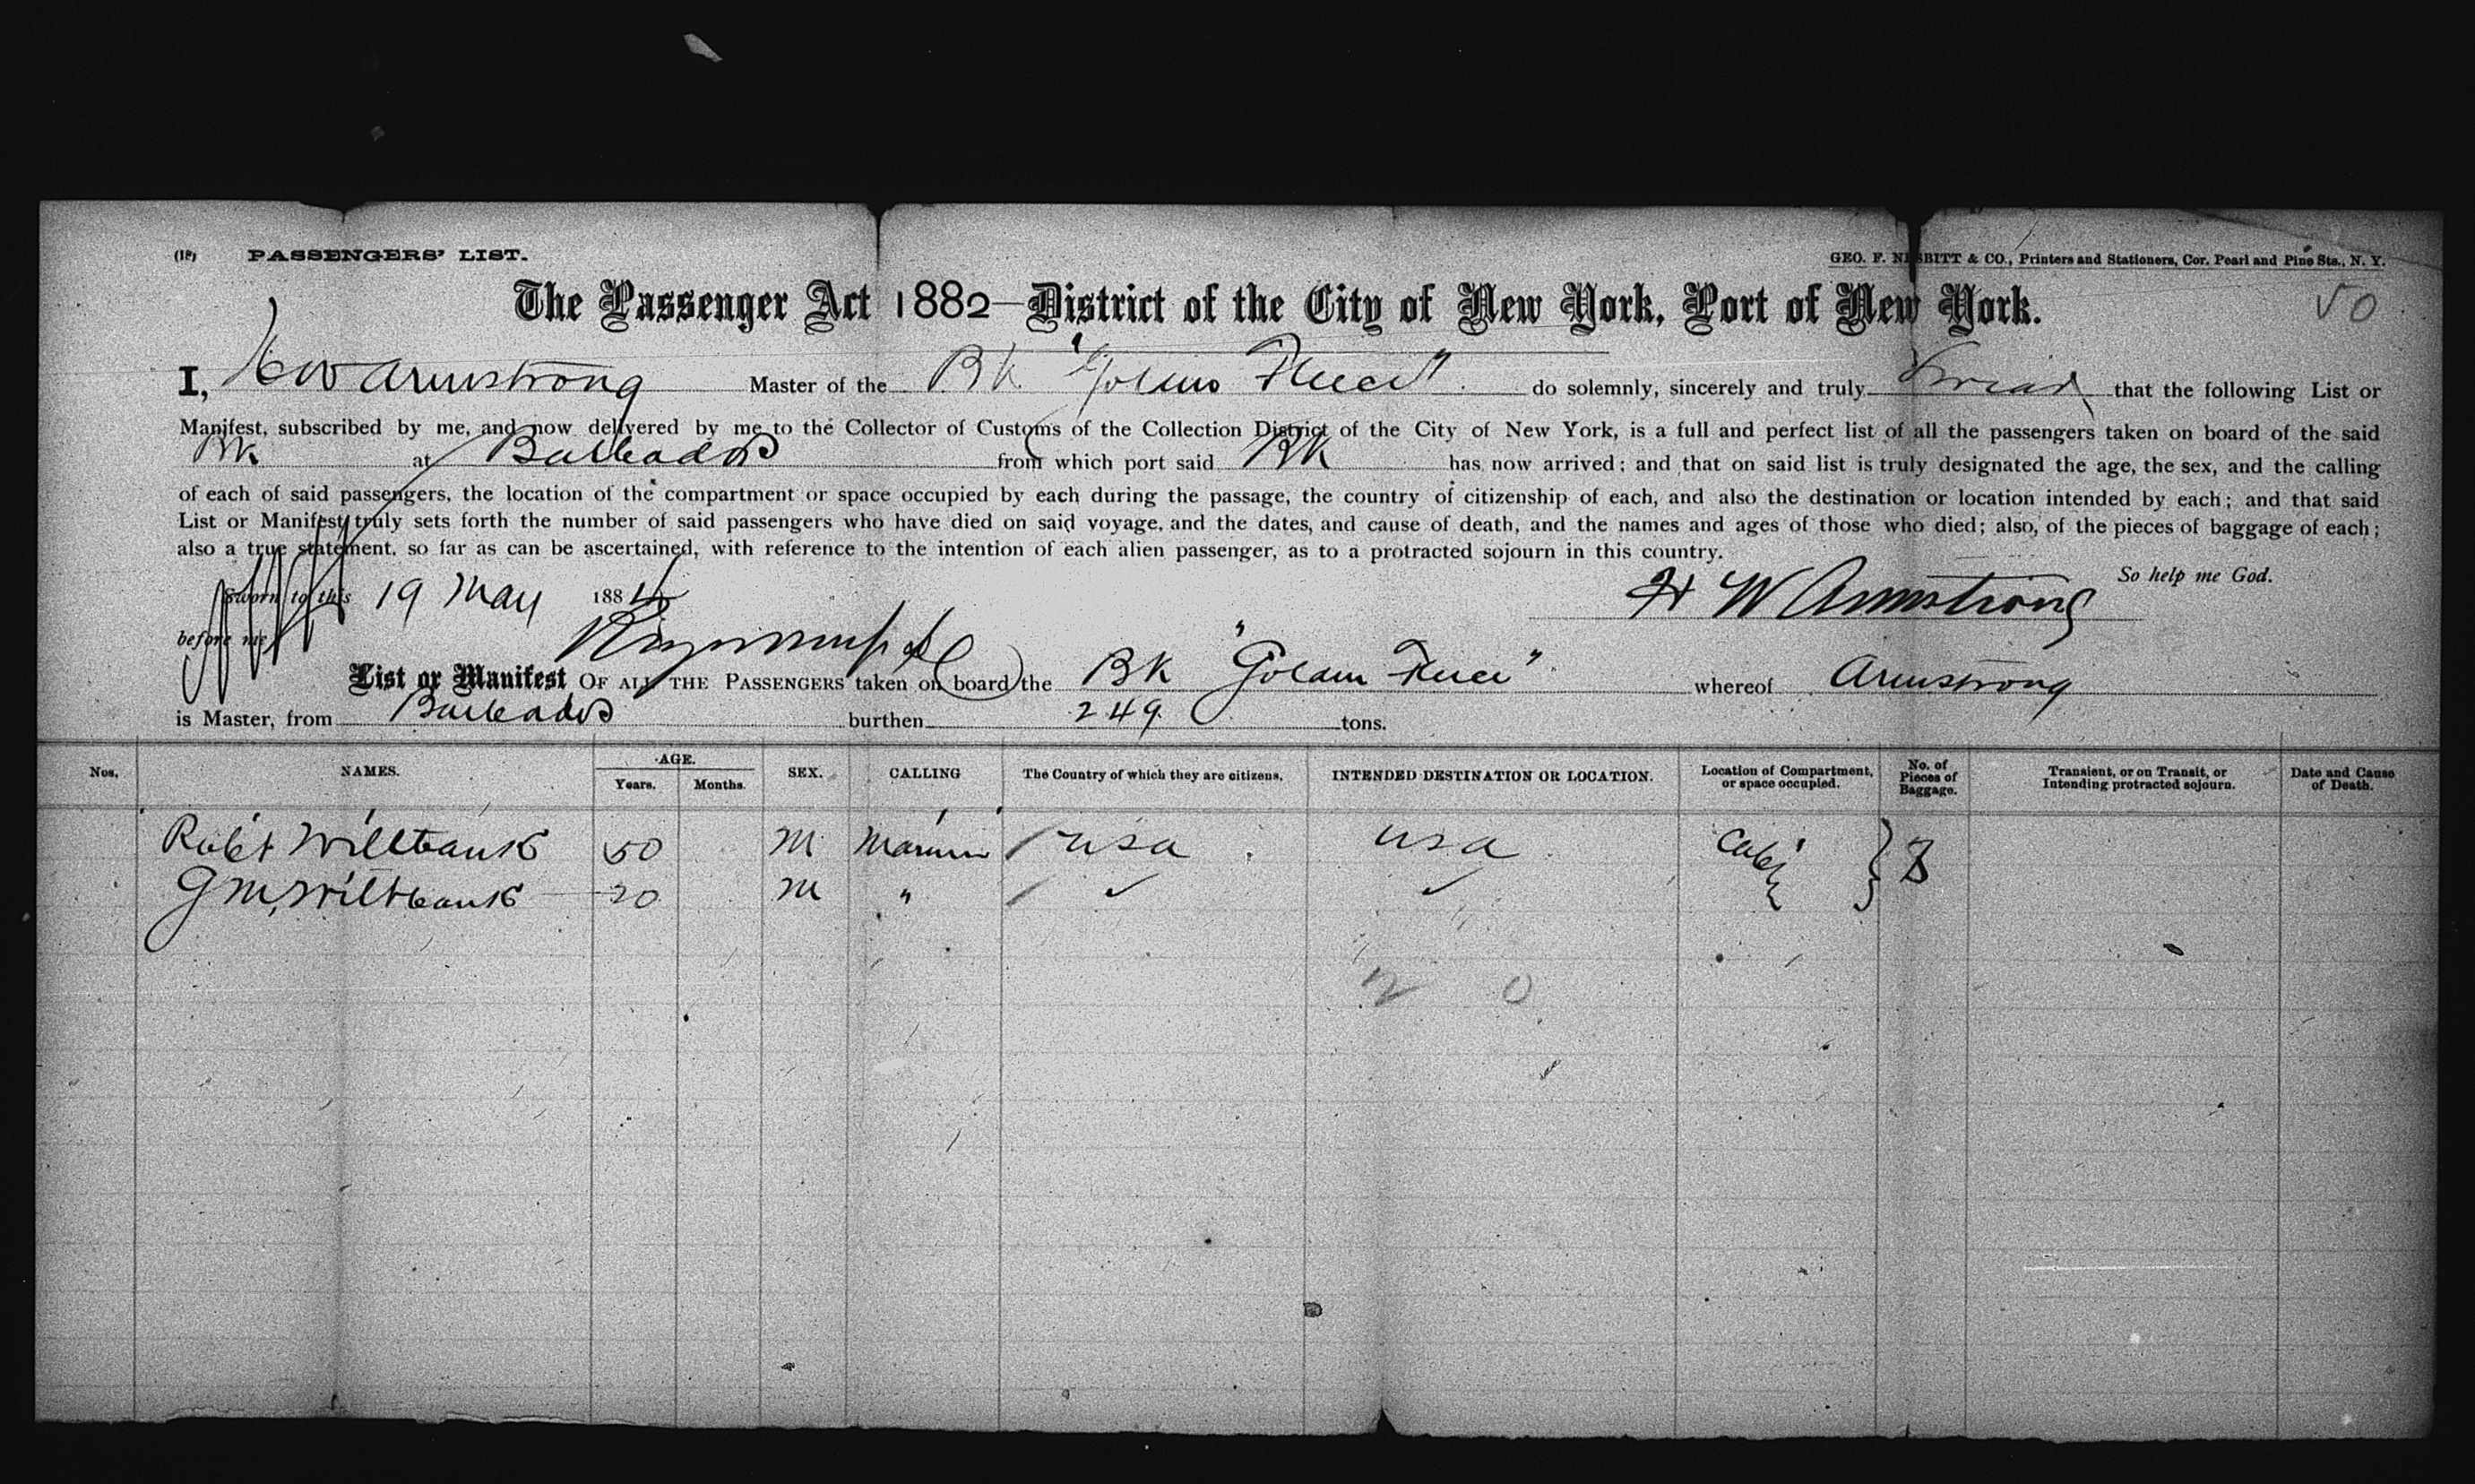 (18) PASSENGERS' LIST. GEO. F. NESBITT & CO., Printers and Stationers, Cor. Pearl and Pine Sts., N. Y.
The Passenger Act 1882—District of the City of New York, Port of New York.
50
I, H W Armstrong Master of the BK "Golden Fleece" do solemnly, sincerely and truly Swear that the following List or
Manifest, subscribed by me, and now delivered by me to the Collector of Customs of the Collection District of the City of New York, is a full and perfect list of all the passengers taken on board of the said
BK at Barbados from which port said BK has now arrived; and that on said list is truly designated the age, the sex, and the calling
of each of said passengers, the location of the compartment or space occupied by each during the passage, the country of citizenship of each, and also the destination or location intended by each; and that said
List or Manifest truly sets forth the number of said passengers who have died on said voyage, and the dates, and cause of death, and the names and ages of those who died; also, of the pieces of baggage of each;
also a true statement, so far as can be ascertained, with reference to the intention of each alien passenger, as to a protracted sojourn in this country.
So help me God.
Sworn to this 19 May 1884 H W Armstrong
before me
List or Manifest OF ALL THE PASSENGERS taken on board the BK "Golden Fleece" whereof Armstrong
is Master, from Barbados burthen 249 tons.
Nos. NAMES. AGE. Years. Months. SEX. CALLING The Country of which they are citizens. INTENDED DESTINATION OR LOCATION. Location of Compartment, or space occupied. No. of Pieces of Baggage. Transient, or on Transit, or Intending protracted sojourn. Date and Cause of Death.
Robt Wiltbank 50 M Mariner USA USA Cabin
G M Wiltbank 20 M "
2 0